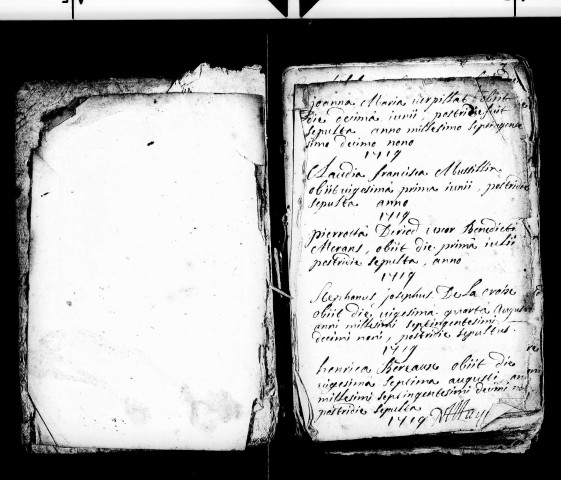 3
joanna Maria verpillat obiit
die decima iunii, postridie fuit
sepulta anno millesimo septingente
simo decimo nono
1719
Claudia francisca Mussillin
obiit vigesima prima iunii, postridie
sepulta anno
1719
pierrotta Deriod uxor Benedicti
Merans, obiit die prima iulii
postridie sepulta, anno
1719
Stephanus josephus De La croix
obiit die vigesima quarta Augusti
anni millesimi septingentesimi
decimi noni, postridie sepultus.
1719
henrica Bereaux obiit die
vigesima septima augusti, anni
millesimi septingentesimi decimi noni
postridie sepulta
1719